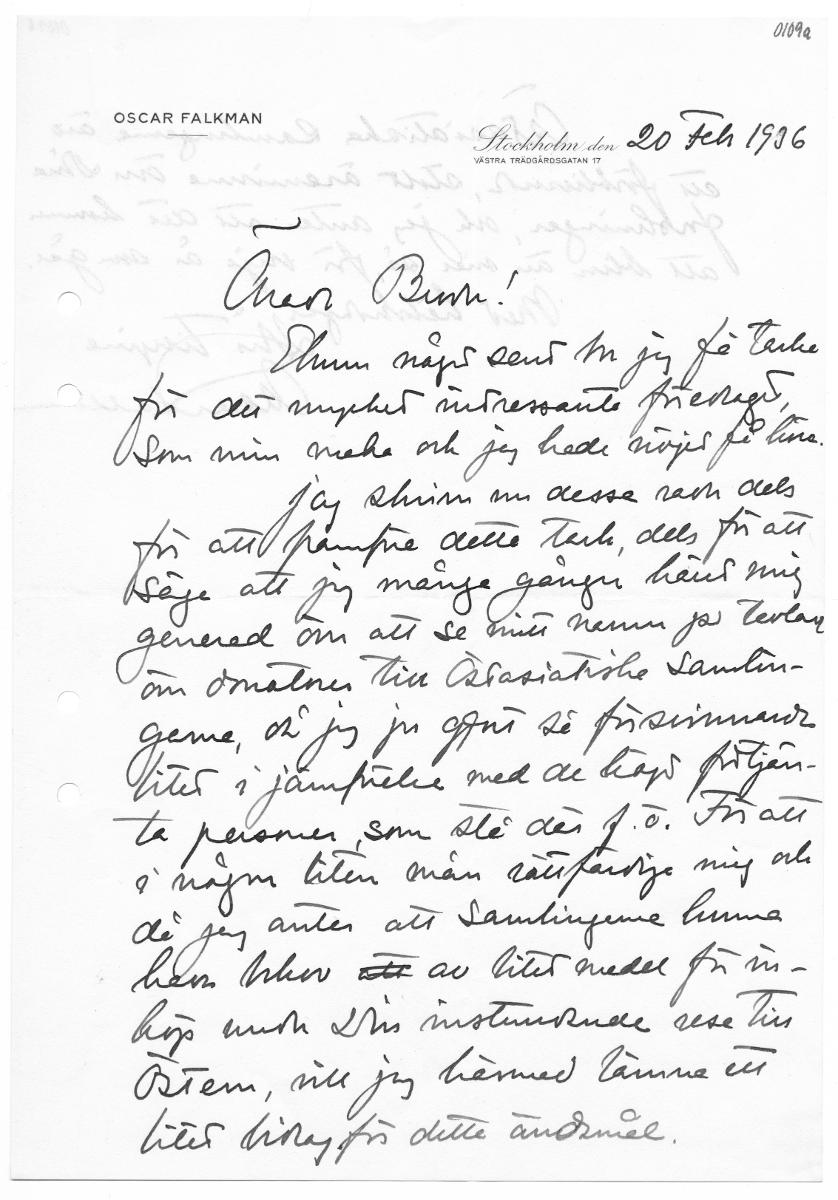 0109a
OSCAR FALKMAN
Stockholm den 20 Feb 1936
VÄSTRA TRÄDGÅRDSGATAN 17
Ärade Broder!
Ehuru något sent ber jag få tacka
för det mycket intressanta föredraget,
som min maka och jag hade nöjet få höra.
Jag skriver nu dessa rader dels
för att framföra detta tack, dels för att
säga att jag många gånger känt mig
generad över att se mitt namn på tavlan
över donatorer till Östasiatiska Samlin-
garna, då jag ju gjort så försvinnande
litet i jämförelse med de högt förtjän-
ta personer, som stå där f.ö. För att
i någon liten mån rättfärdiga mig och
då jag antar att Samlingarna kunna
hava behov att av litet medel för in-
köp under Din instundande resa till
Östern, vill jag härmed lämna ett
litet bidrag för detta ändamål.